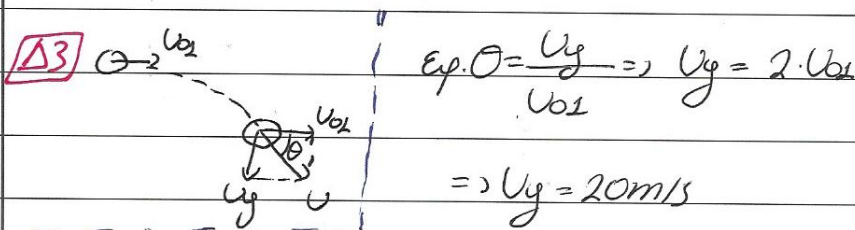 Δ3
υ01
υ01
θ
υy υ
εφ.θ = υy / υ01 => υy = 2·υ01
=> υy = 20m/s